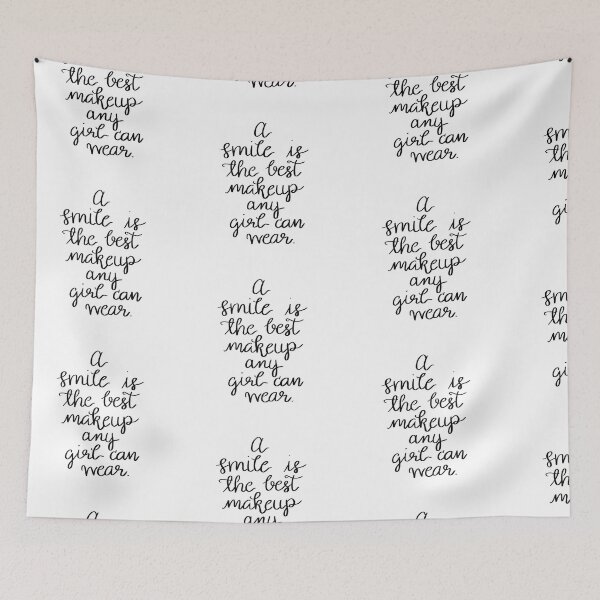 the best
makeup
any
girl can
wear.
A
smile is
the best
makeup
any
girl can
wear.
A
smile is
the best
makeup
any
girl can
wear.
A
wear.
A
smile is
the best
makeup
any
girl can
wear.
A
smile is
the best
makeup
any
girl can
wear.
A
smile is
the best
makeup
any
the best
makeup
any
girl can
wear.
A
smile is
the best
makeup
any
girl can
wear.
A
smile is
the best
makeup
any
girl can
wear.
A
sm
th
gi
sm
th
gi
sm
th
m